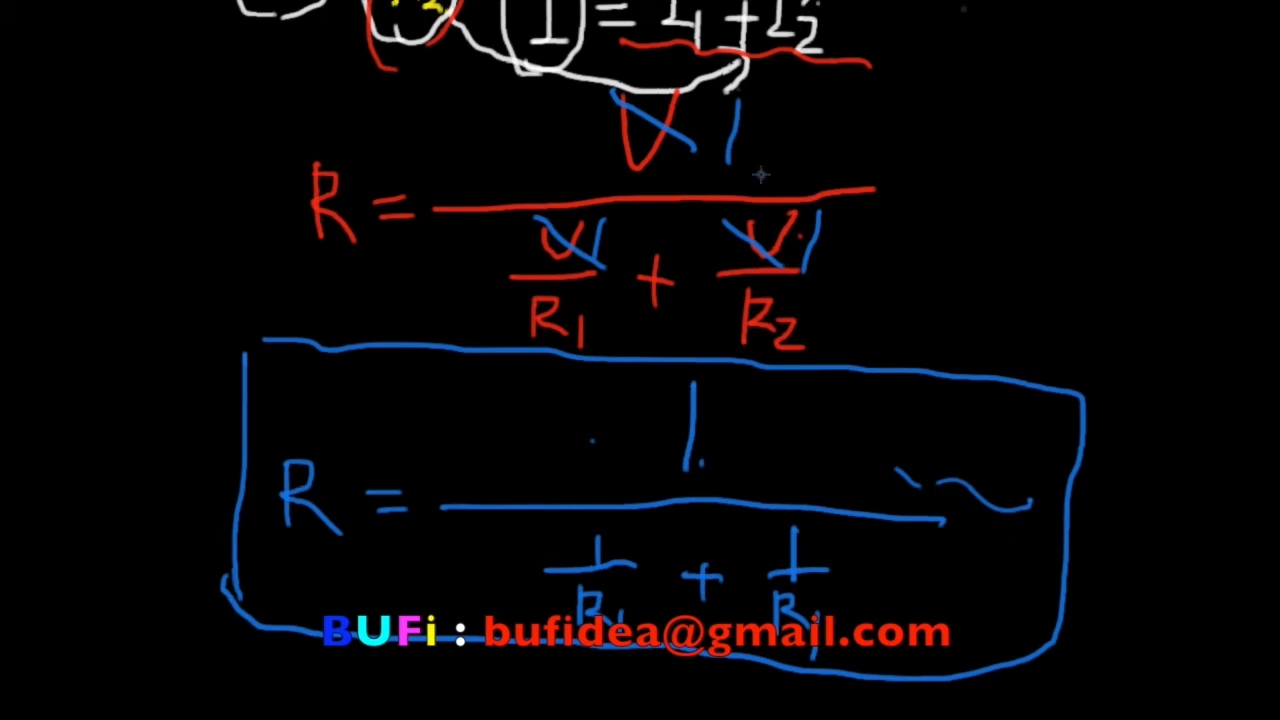 I = I₁ + I₂
V 1
R = ―――――――
V 1 / R₁ + V 1 / R₂
1
R = ―――――――
1/R₁ + 1/R
BUFi : bufidea@gmail.com